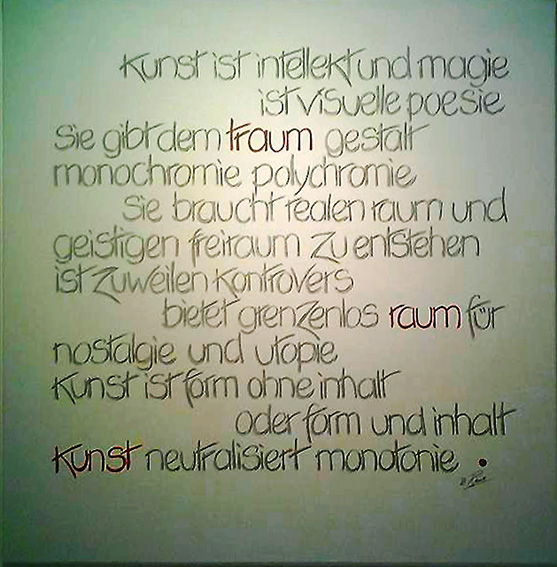 kunst ist intellekt und magie
ist visuelle poesie
sie gibt dem traum gestalt
monochromie polychromie
sie braucht realen raum und
geistigen freiraum zu entstehen
ist zuweilen kontrovers
bietet grenzenlos raum für
nostalgie und utopie
kunst ist form ohne inhalt
oder form und inhalt
kunst neutralisiert monotonie .